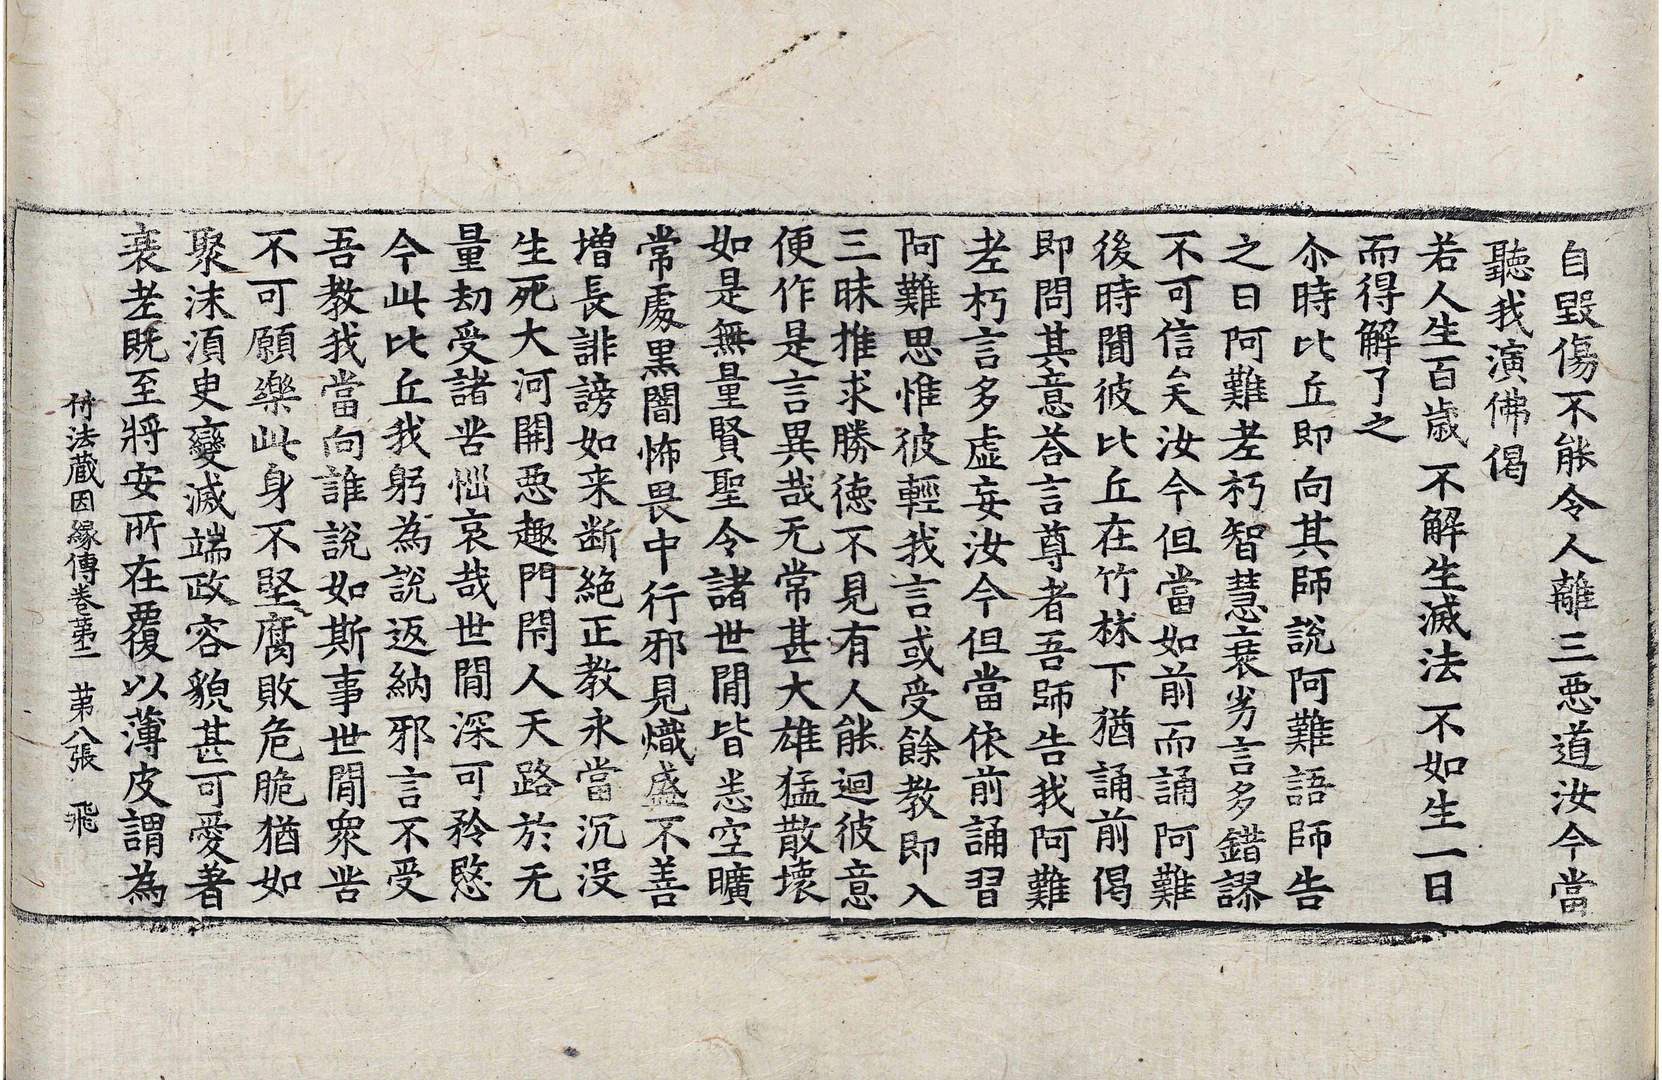 自毀傷不能令人離三惡道汝今當
聽我演佛偈
若人生百歲 不解生滅法 不如生一日
而得解了之
尒時比丘即向其師說阿難語師告
之曰阿難老朽智慧衰劣言多錯謬
不可信矣汝今但當如前而誦阿難
後時聞彼比丘在竹林下猶誦前偈
即問其意荅言尊者吾師告我阿難
老朽言多虛妄汝今但當依前誦習
阿難思惟彼輕我言或受餘教即入
三昧推求勝德不見有人能迴彼意
便作是言異哉无常甚大雄猛散壞
如是無量賢聖令諸世閒皆悉空曠
常處黑闇怖畏中行邪見熾盛不善
增長誹謗如来断絕正教永當沉沒
生死大河開惡趣門閇人天路於无
量劫受諸苦惱哀哉世閒深可矜愍
今此比丘我躬為說返納邪言不受
吾教我當向誰說如斯事世閒衆苦
不可願樂此身不堅腐敗危脆猶如
聚沫須臾變滅端政容貌甚可愛著
衰老既至將安所在覆以薄皮謂為
付法藏因緣傳卷第二 第八張 飛